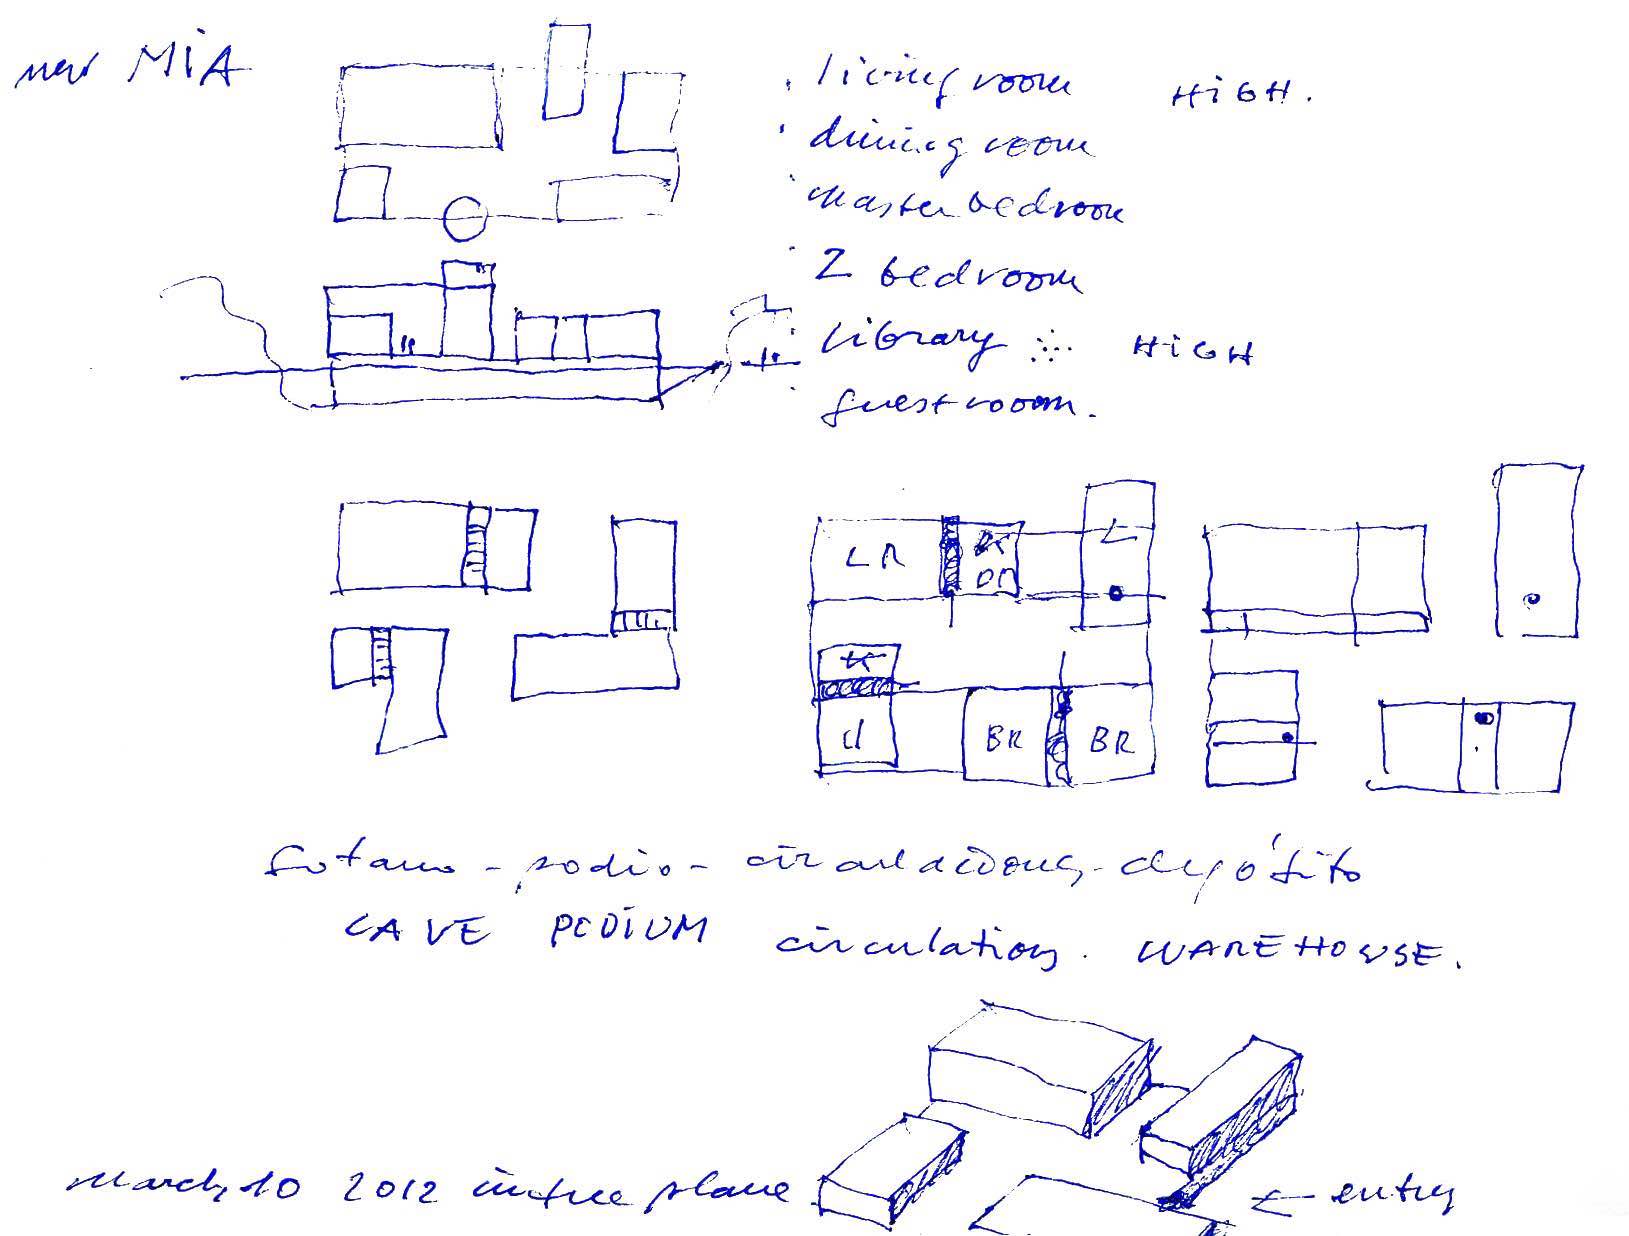 new MiA
living room HiGH.
dining room
master bedroom
2 bedroom
library HiGH
guest rooom.
LR
DR
L
K
BR BR
Sotano - podio - circulaciones - depósito
CAVE PODiUM circulation. WAREHOUSE.
March 10 2012 in the plane
← entry